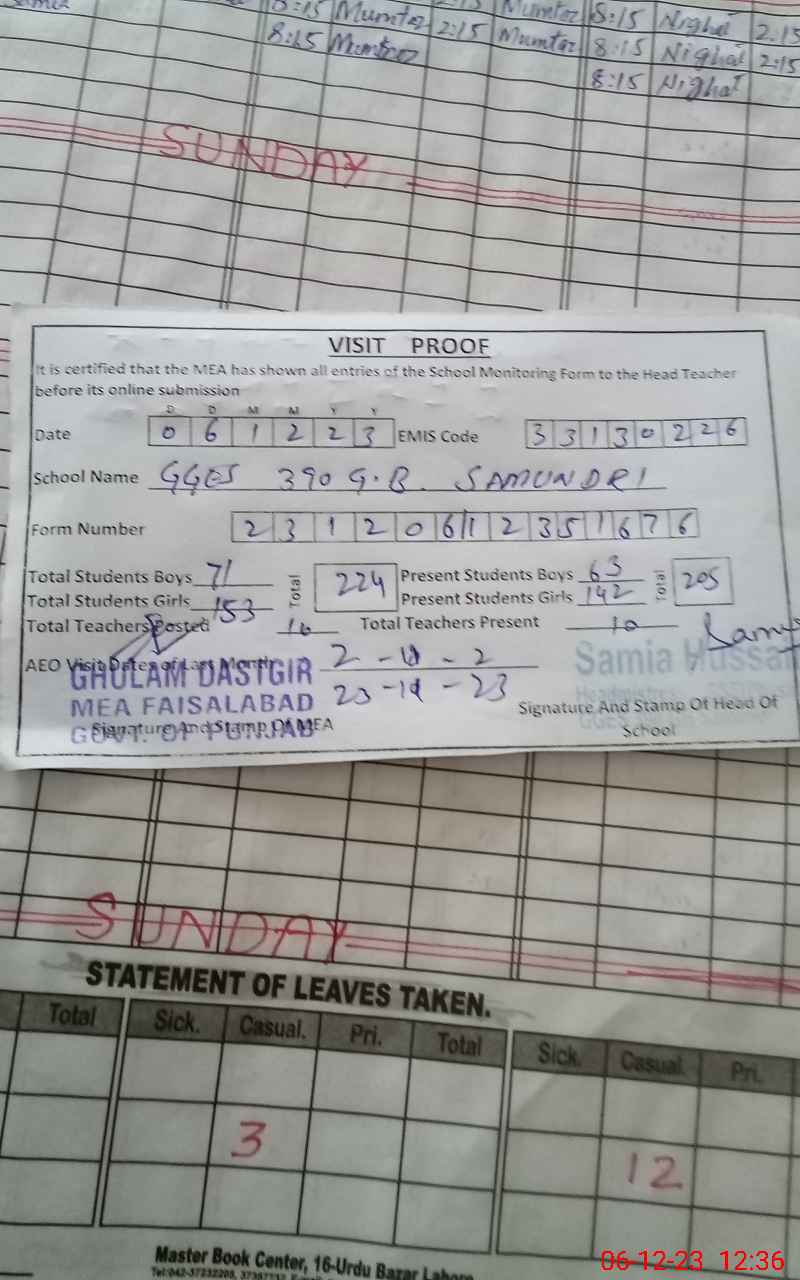 8:15 Mumtaz 2:15 Mumtaz 8:15 Nighat 2:15
8:15 Mumtaz 2:15 Mumtaz 8:15 Nighat 2:15
8:15 Nighat
SUNDAY
VISIT PROOF
It is certified that the MEA has shown all entries of the School Monitoring Form to the Head Teacher
before its online submission
D D M M Y Y
Date 0 6 1 2 2 3 EMIS Code 3 3 1 3 0 2 2 6
School Name GGES 390 G.B. SAMUNDRI
Form Number 2 3 1 2 0 6 1 1 2 3 5 1 6 7 6
Total Students Boys 71 Total 224 Present Students Boys 63 Total 205
Total Students Girls 153 Present Students Girls 142
Total Teachers Posted 10 Total Teachers Present 10
AEO Visit Dates of Last Month
GHULAM DASTGIR
MEA FAISALABAD
GOVT. OF PUNJAB
Signature And Stamp Of MEA
Samia Hussain
Signature And Stamp Of Head Of
School
SUNDAY
STATEMENT OF LEAVES TAKEN.
Total Sick. Casual. Pri. Total Sick. Casual. Pri.
3 12
Master Book Center, 16-Urdu Bazar Lahore
06-12-23 12:36